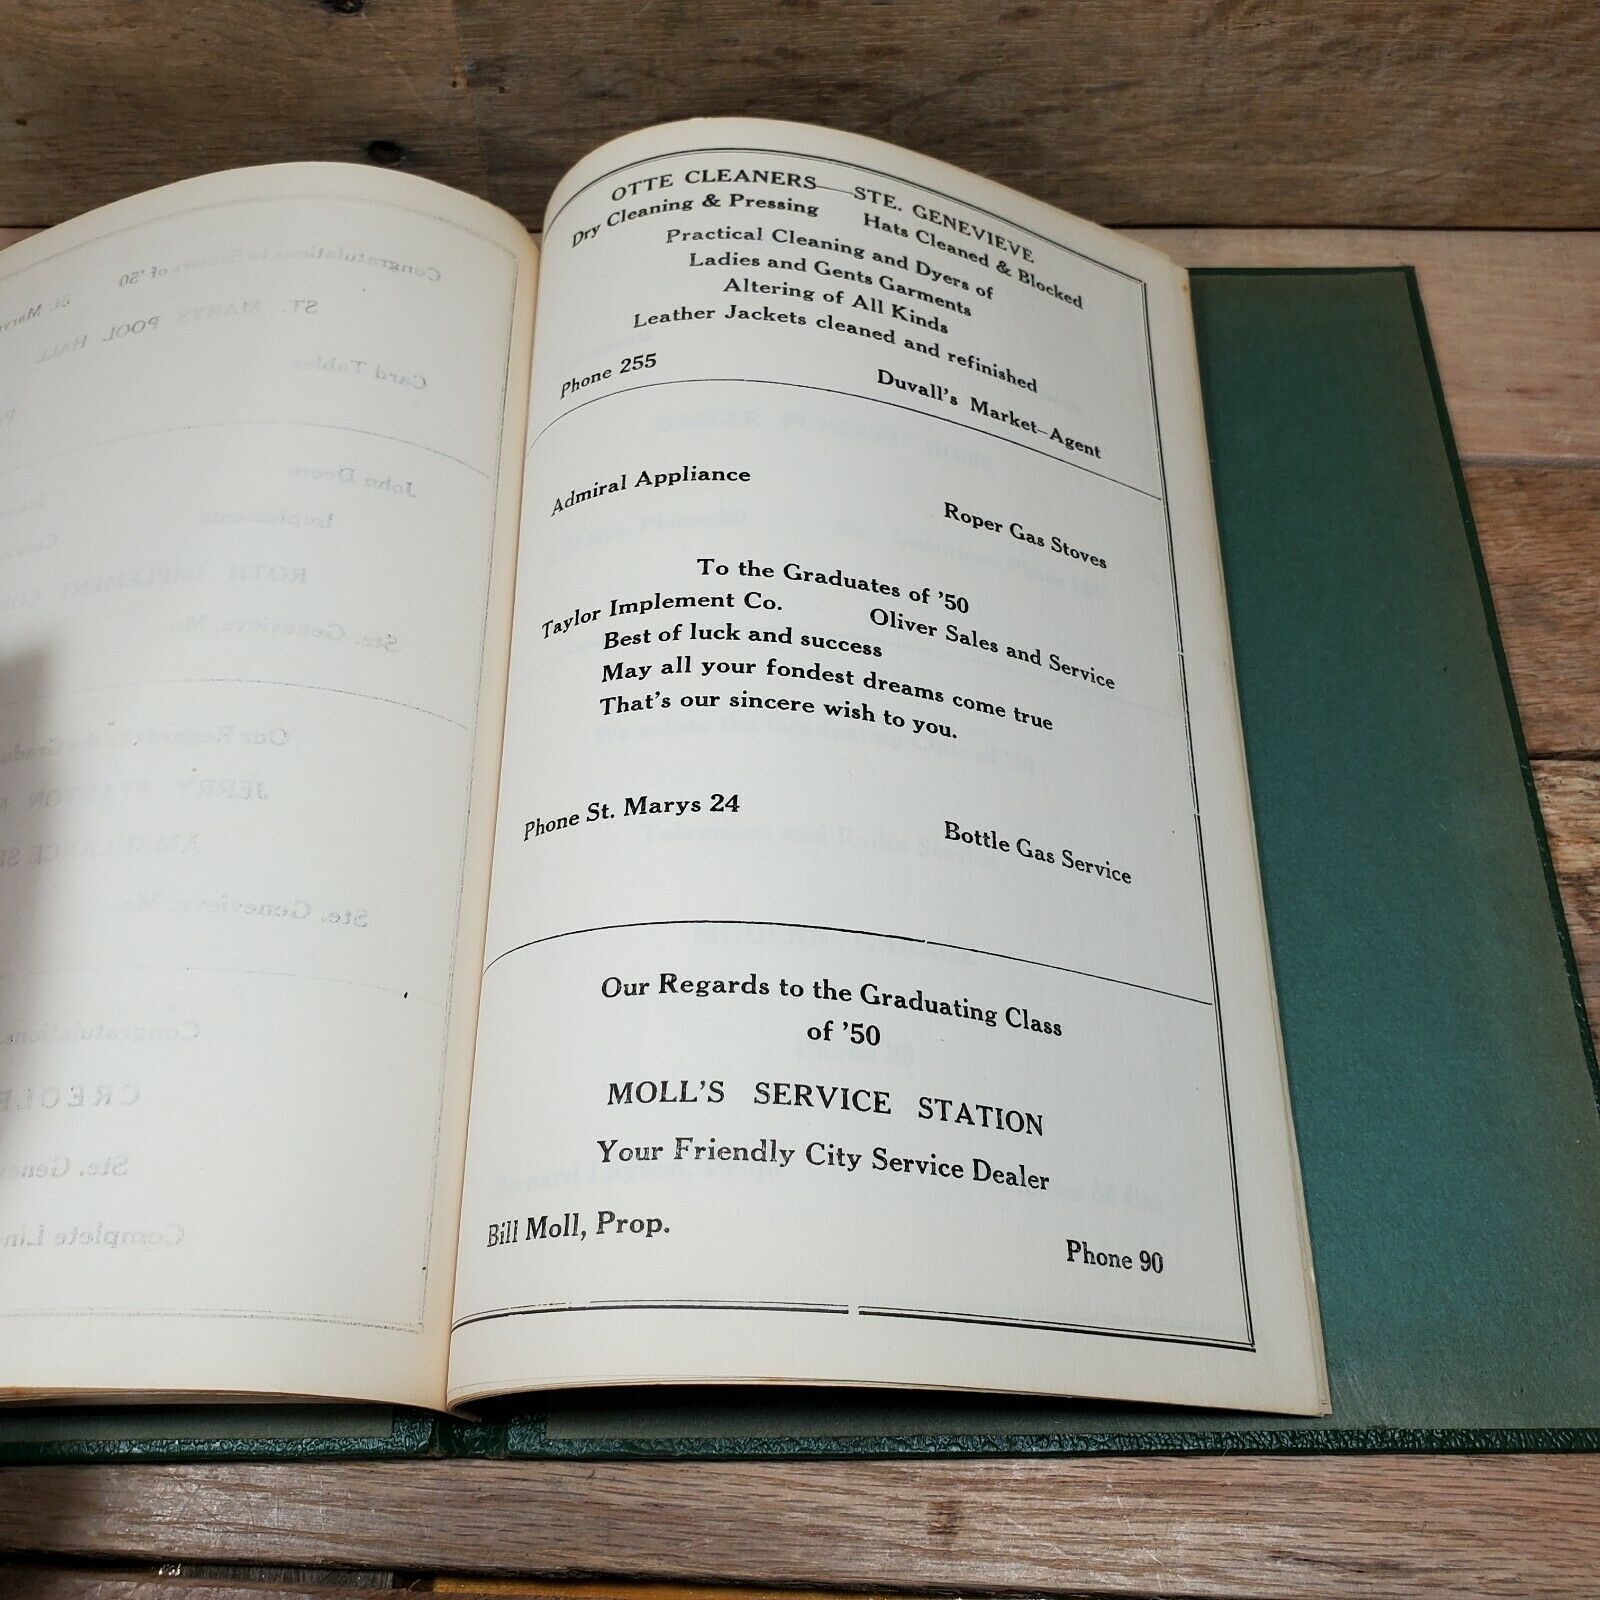 OTTE CLEANERS—STE. GENEVIEVE
Dry Cleaning & Pressing Hats Cleaned & Blocked
Practical Cleaning and Dyers of
Ladies and Gents Garments
Altering of All Kinds
Leather Jackets cleaned and refinished
Phone 255 Duvall's Market—Agent
Admiral Appliance Roper Gas Stoves
To the Graduates of '50
Taylor Implement Co. Oliver Sales and Service
Best of luck and success
May all your fondest dreams come true
That's our sincere wish to you.
Phone St. Marys 24 Bottle Gas Service
Our Regards to the Graduating Class
of '50
MOLL'S SERVICE STATION
Your Friendly City Service Dealer
Bill Moll, Prop. Phone 90